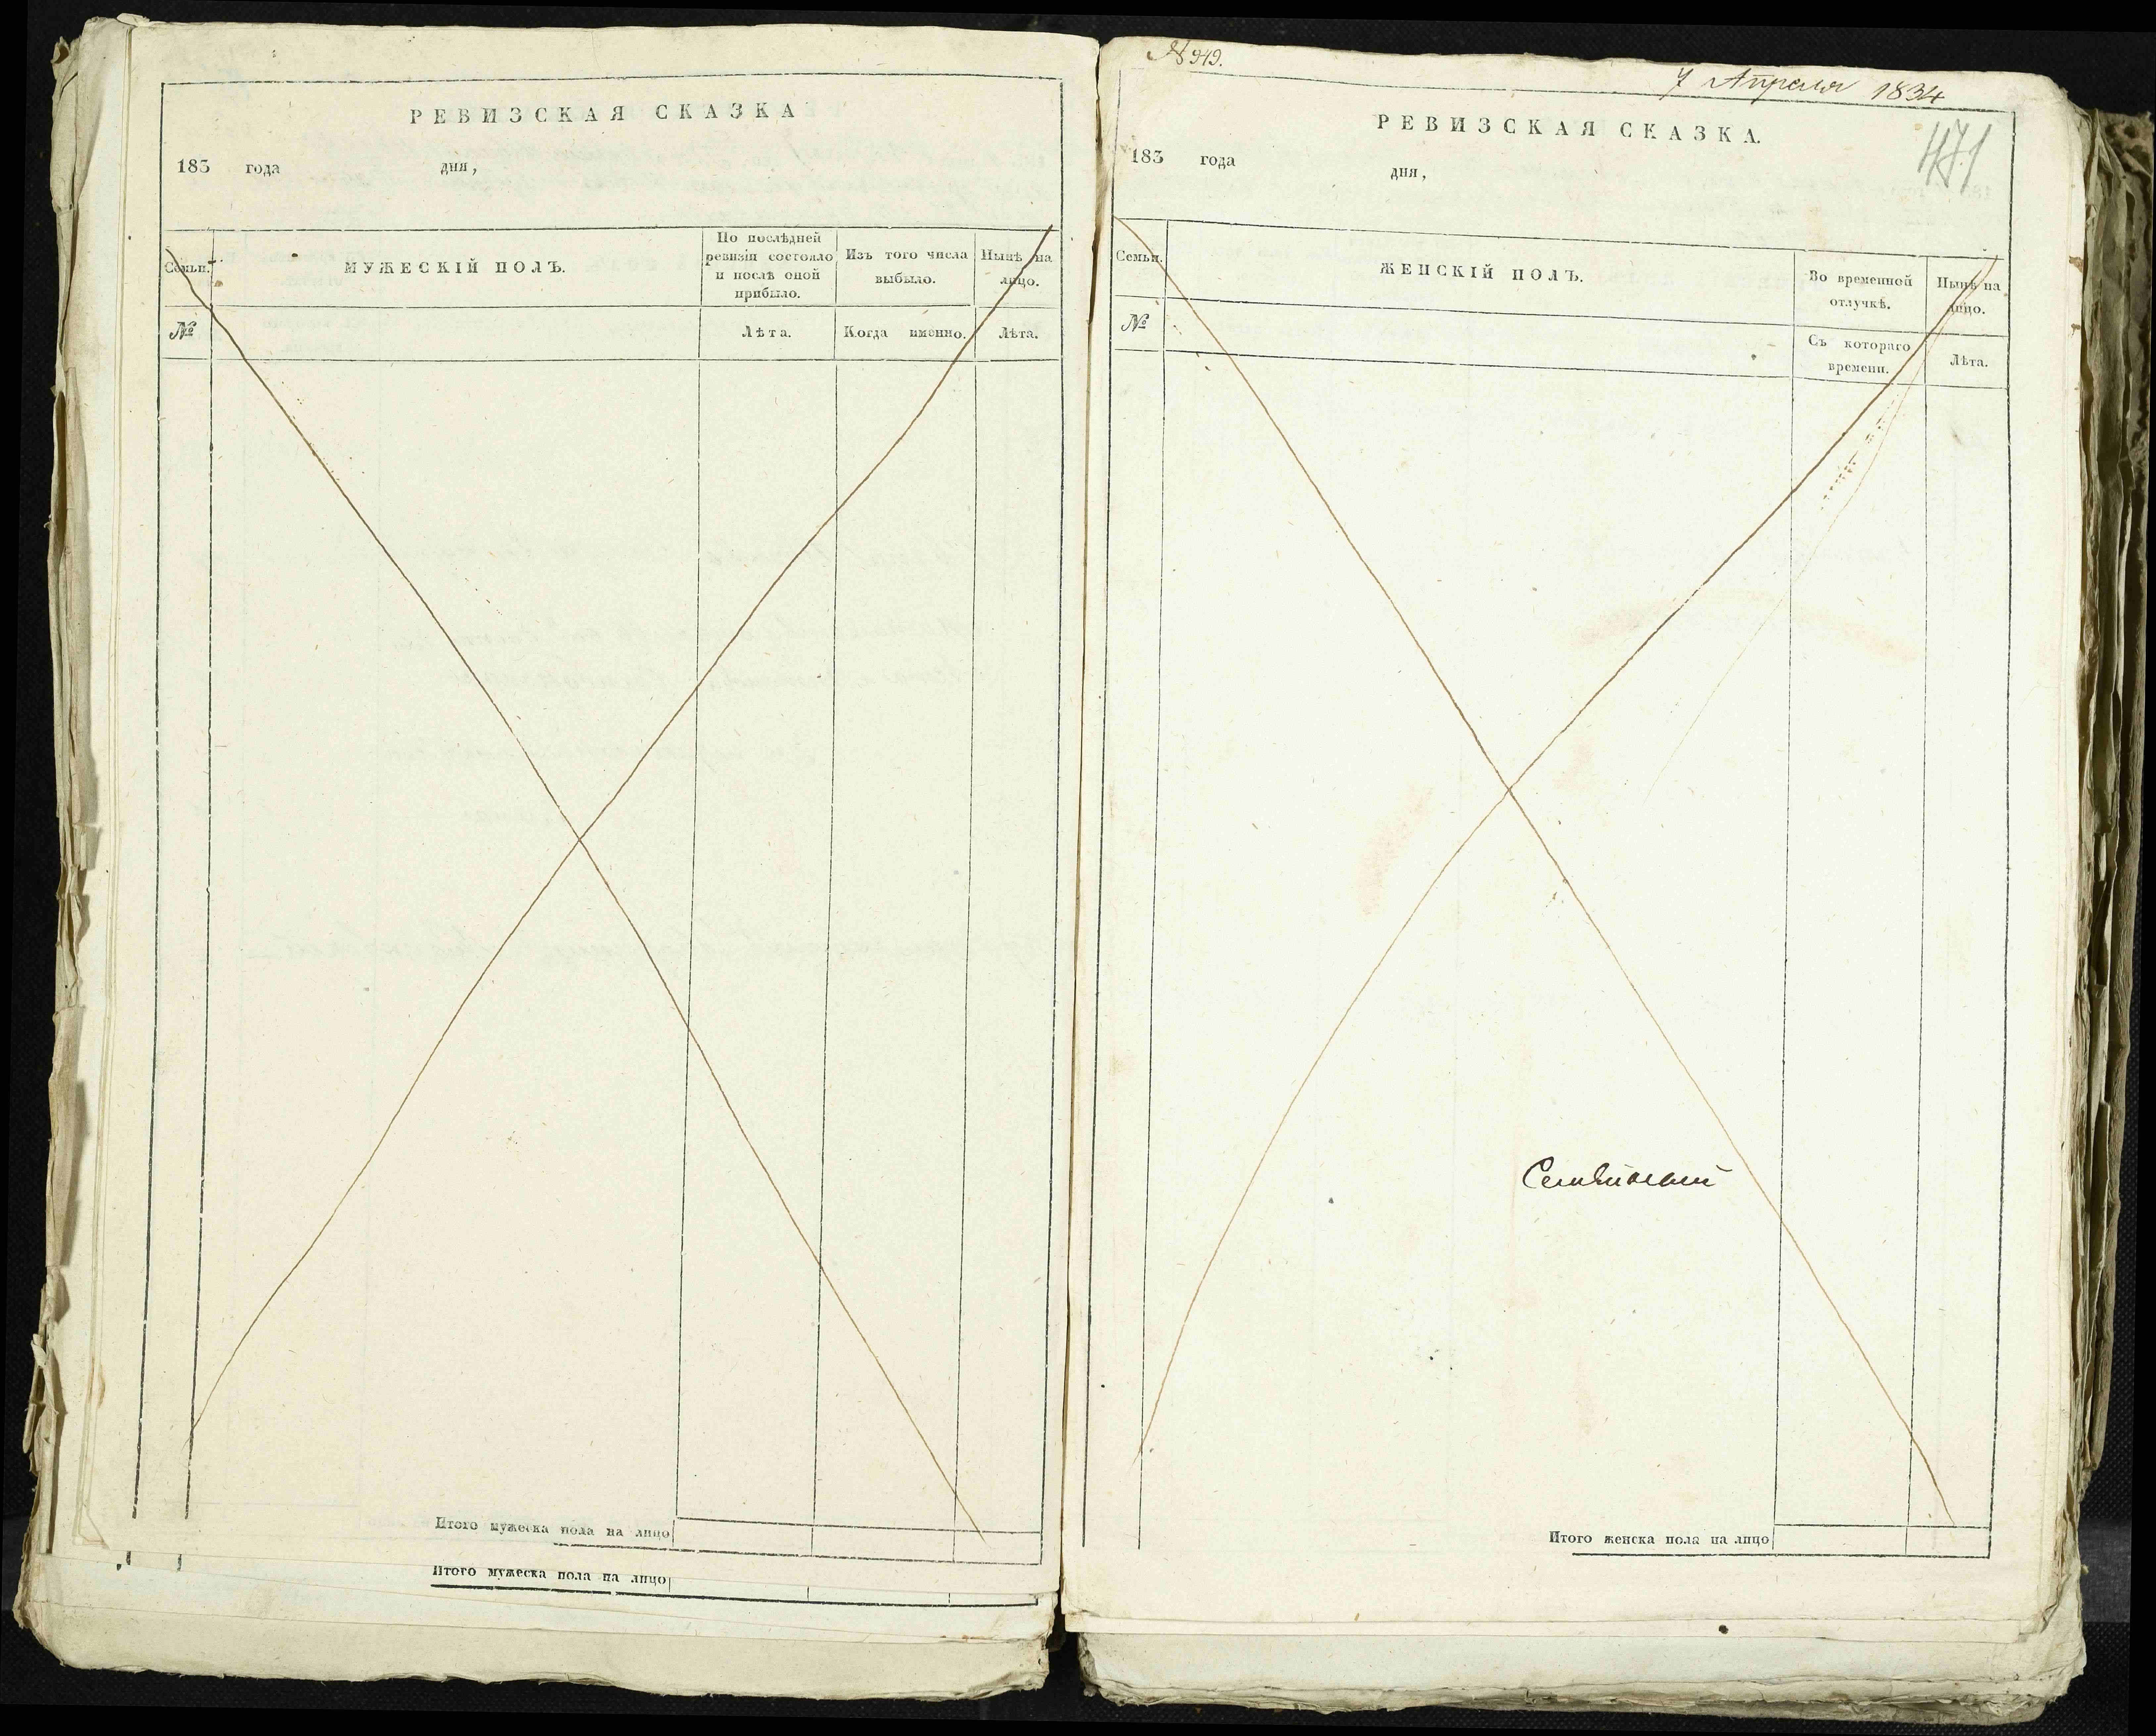 РЕВИЗСКАЯ СКАЗКА
183 года дня,
Семьи.
МУЖЕСКІЙ ПОЛЪ.
По послѣдней
ревизіи состояло
и послѣ оной
прибыло.
Изъ того числа
выбыло.
Нынѣ на
лицо.
№
Лѣта.
Когда именно.
Лѣта.
Итого мужеска пола на лицо
Итого мужеска пола на лицо
№ 949.
7 Апреля 1834
РЕВИЗСКАЯ СКАЗКА.
471
183 года дня,
Семьи.
ЖЕНСКІЙ ПОЛЪ.
Во временной
отлучкѣ.
Нынѣ на
лицо.
№
Съ котораго
времени.
Лѣта.
Итого женска пола на лицо